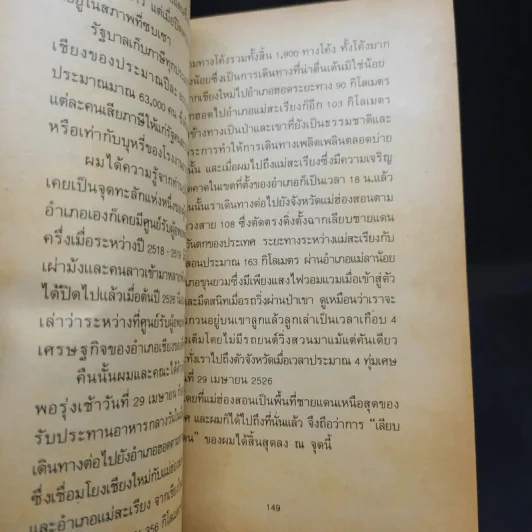 อยู่ในสภาพที่ซบเซา
รัฐบาลเก็บภาษี
เชียงของประมาณปีละ
ประมาณมาณ 63,000 คน
แต่ละคนเสียภาษีให้แก่
หรือเท่ากับบุหรี่ของ
ผมได้ความรู้จาก
เคยเป็นจุดทะลักแห่งหนึ่งของ
อำเภอเองก็เคยมีศูนย์รับผู้
ครึ่งเมื่อระหว่างปี 2518
เผ่าม้งและคนลาวเข้ามา
ได้ปิดไปแล้วเมื่อต้นปี 2526
เล่าว่าระหว่างที่ศูนย์รับผู้
เศรษฐกิจของอำเภอเชียงของ
คืนนั้นผมและคณะได้
พอรุ่งเช้าวันที่ 29 เมษายน
รับประทานอาหารกลางวัน
เดินทางต่อไปยังอำเภอฮอด
ซึ่งเชื่อมโยงเชียงใหม่กับแม่ฮ่อง
และอำเภอแม่สะเรียง จาก
256 กิโลเมตร
ทางโค้งรวมทั้งสิ้น 1,900 ทางโค้ง ทั้งโค้งมาก
น้อยซึ่งเป็นการเดินทางที่น่าตื่นเต้นมิใช่น้อย
เชียงใหม่ไปอำเภอฮอดระยะทาง 90 กิโลเมตร
ฮอดไปอำเภอแม่สะเรียงก็อีก 103 กิโลเมตร
ข้างทางเป็นป่าและเขาที่ยังเป็นธรรมชาติและ
ระการทำให้การเดินทางเพลิดเพลินตลอดบ่าย
นั้น และเมื่อผมไปถึงแม่สะเรียงซึ่งมีความเจริญ
คาดในเขตที่ตั้งของอำเภอก็เป็นเวลา 18 น.แล้ว
นั้นเราเดินทางต่อไปยังจังหวัดแม่ฮ่องสอนตาม
วงสาย 108 ซึ่งตัดตรงดิ่งตั้งฉากเลียบชายแดน
วันตกของประเทศ ระยะทางระหว่างแม่สะเรียงกับ
สอนประมาณ 163 กิโลเมตร ผ่านอำเภอแม่ลาน้อย
อำเภอขุนยวมซึ่งมีเพียงแสงไฟวอมแวมเมื่อเข้าสู่ตัว
และมืดสนิทเมื่อรถวิ่งผ่านป่าเขา ดูเหมือนว่าเราจะ
กวนอยู่บนเขาลูกแล้วลูกเล่าเป็นเวลาเกือบ 4
เต็มโดยไม่มีรถยนต์วิ่งสวนมาแม้แต่คันเดียว
ทั่งเราไปถึงตัวจังหวัดเมื่อเวลาประมาณ 4 ทุ่มเศษ
ที่ 29 เมษายน 2526
โดยที่แม่ฮ่องสอนเป็นพื้นที่ชายแดนเหนือสุดของ
ศ และผมก็ได้ไปถึงที่นั่นแล้ว จึงถือว่าการ “เลียบ
น” ของผมได้สิ้นสุดลง ณ จุดนี้
149